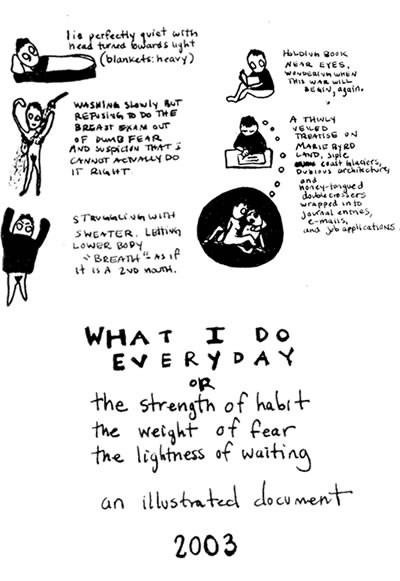 lie perfectly quiet with
head turned towards light
(blankets: heavy)
WASHING SLOWLY BUT
REFUSING TO DO THE
BREAST EXAM OUT
OF DUMB FEAR
AND SUSPICION THAT I
CANNOT ACTUALLY DO
IT RIGHT.
STRUGGLING WITH
SWEATER. LETTING
LOWER BODY
"BREATH" AS IF
IT IS A 2ND MOUTH.
HOLDING BOOK
NEAR EYES,
WONDERING WHEN
THIS WAR WILL
BEGIN, again.
A THINLY
VEILED
TREATISE ON
MARIE BYRD
LAND, Siple
coast Glaciers,
Dubious architecture,
and
honey-tongued
doublecrossers
wrapped into
journal entries,
e-mails,
and job applications.
WHAT I DO
EVERYDAY
OR
the strength of habit
the weight of fear
the lightness of waiting
an illustrated document
2003